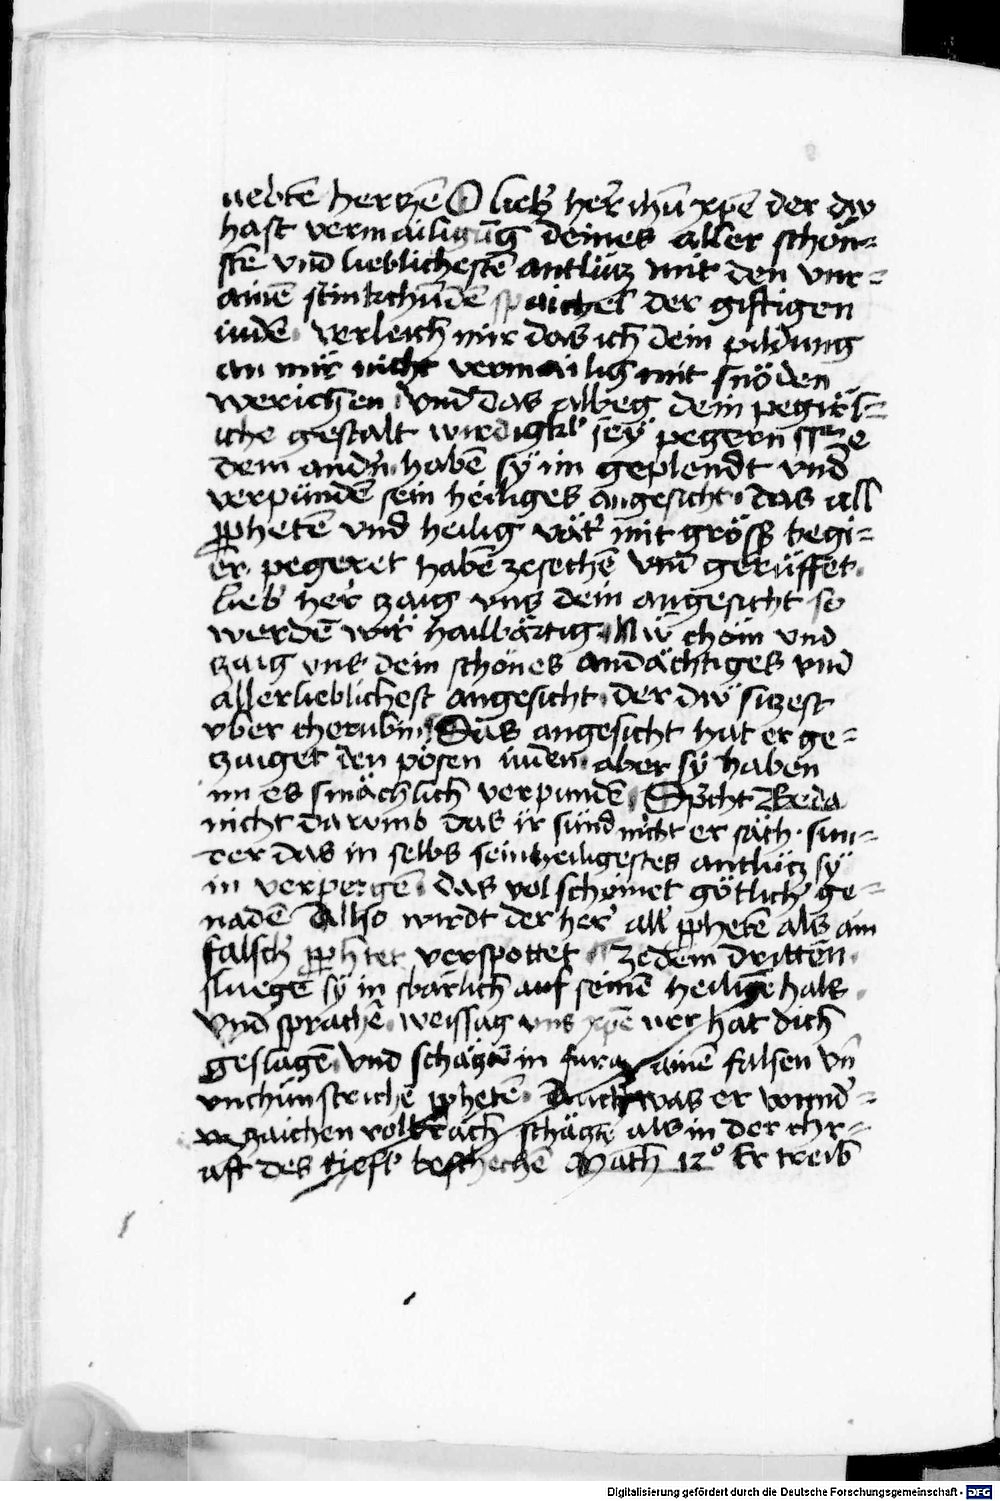 uebtē hertzē O lieb' her' ihū xpē der dw
hast vermailigūg deines aller schön=
stē vnd lieblichestē antlütz mit den vnr=
ainē stinkchūdē spaichel der giftigen
iudē. verleich mir das ich dein pildung
an mir nicht vermailig mit snöden
werichen. vnd das albeg dein
iche gestalt wirdigkl' sey pegern
dem andn. habē sy im geplendt vnd
verpündē sein heiliges angesicht. das all
ꝓphetē vnd heilig vät' mit gröss begi=
er pegeret habē zesechē vnd gerüffet.
lieb' her' tzaig vns dein angesicht so
werdē wir hailbärtig. Nw chöm vnd
tzaig vns dein schönes andächtiges vnd
allerlieblichest angesicht. der dw sitzest
vber cherubin. Das angesicht hat er ge=
tzaiget den pösen iuden. aber sy haben
im es smächlich verpundē. Spricht Beda
nicht darumb das ir sünd nicht er säch. sun=
der das in selbs sein heiligestes antlütz sy
in verpergē. das vol scheinet götlich' ge=
nadē Allso wirdt der her' all' ꝓphetē als ain
falsch' verspottet. Ze dem dritten.
sluegē sy in sbärlich auf seinē heiligē hals.
Vnd sprachē. weissag vns xpē wer hat dich
geslagē. vnd schätztē in fur ainē falsen vn̄
vnchünstrichē ꝓphetē. Auch was er wund'=
tzaichen volbrach schätztē als in der chr=
aft des tiefl' beschechē Math 12° Er treib